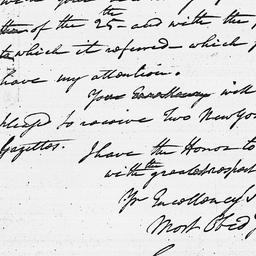 the
of the 25- and with the
to which it referred- which
have my attention.
Your Excellency will
obliged to receive Two New York
Gazettes. I have the Honor to
with the greatest respect
Yr Excellency's
Most Obed